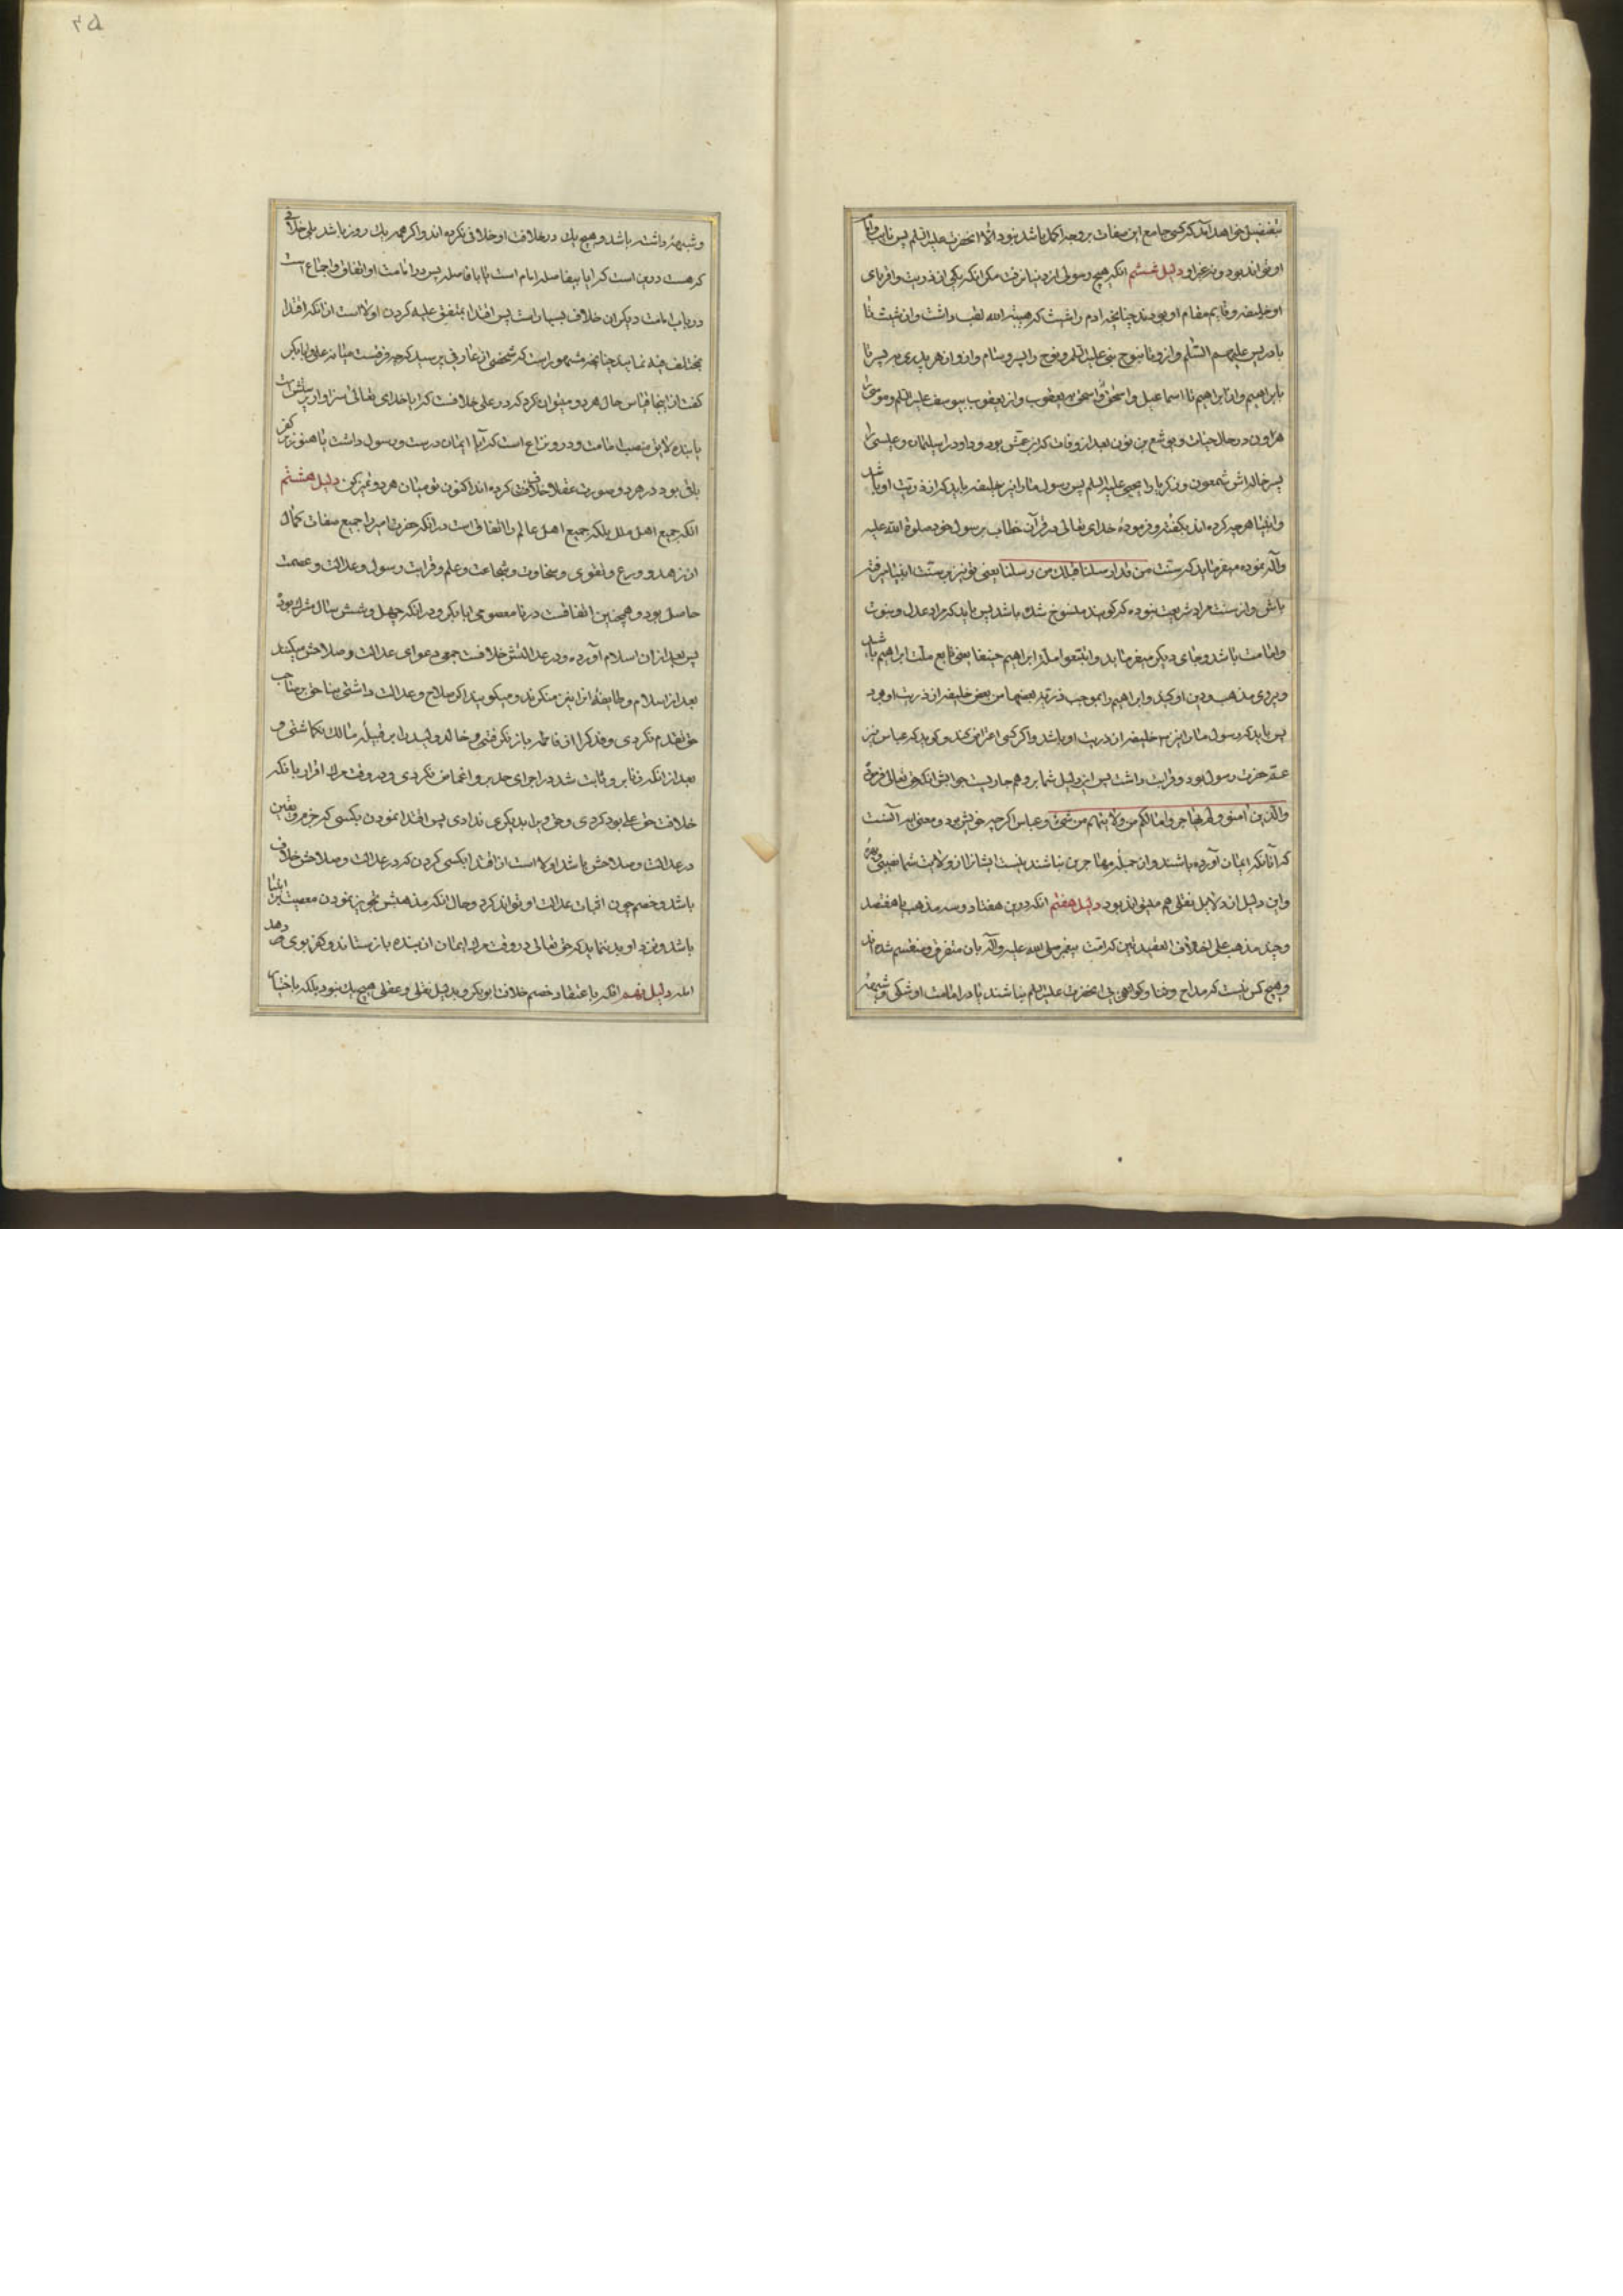 بتفضیل خواهد آمد که کسی جامع این صفات بروجه اکمل باشد نبود الا آنحضرت علیه السلم پس نایب و امام
او تواند بود و نه غیر او دلیل ششم آنکه هیچ رسولی از دنیا نرفت مگر آنکه یکی از ذریت و اقربای
او خلیفه و قایم مقام او بودند چنانچه آدم را شیث که هبة الله لقب داشت و از شیث تا
بادریس علیهم السلم و از و تا بنوح نبی علیه السلم و نوح را پسر و سام و از و از هر پدری به پسر تا
بابراهیم و از ابراهیم تا اسماعیل و اسحق و اسحق به یعقوب و از یعقوب بیوسف علیه السلم و موسی را
هرون در حال حیات و یوشع بن نون بعد از وفات که ابن عمش بود و داود را سلیمان و عیسی را
پسر خاله‌اش شمعون و زکریا را یحیی علیه السلم پس رسول ما را نیز خلیفه باید که از ذریت او باشد
و انبیا هرچه کرده‌اند بگفته و فرموده خدای تعالی در قرآن خطاب برسول خود صلوة الله علیه
وآله نموده میفرماید که سنت من قد ارسلنا قبلک من رسلنا یعنی تو نیز بر سنت انبیا برفته
باش و از سنت مراد شریعت نبوده که گویند منسوخ شده باشد پس باید که مراد عدل و نبوت
و امامت باشد و جای دیگر میفرماید و اتبعوا ملة ابراهیم حنیفا یعنی تابع ملت ابراهیم باشد
و پیروی مذهب و دین او کنید و ابراهیم را بموجب ذریة بعضها من بعض خلیفه از ذریت او بود
پس باید که رسول ما را نیز خلیفه از ذریت او باشد و اگر کسی اعتراض کند و گوید که عباس نیز
عم حضرت رسول بود و قرابت داشت پس این دلیل شما برو هم جاریست جوابش آنکه حق تعالی فرموده
والذین آمنوا ولم یهاجروا مالکم من ولایتهم من شیئ و عباس اگرچه خویش بود و معنی این آنست
که آنانکه ایمان آورده باشند و از جمله مهاجرین نباشند نیست ایشانرا از ولایت شما نصیبی و بهره
و این دلیل از دلایل نقلی هم میتواند بود دلیل هفتم آنکه درین هفتاد و سه مذهب یا هفتصد
و چند مذهب علی اختلاف العقیدتین که امت پیغمبر صلی الله علیه وآله بان متفرق و منقسم شده‌اند
و هیچ کس نیست که مداح و ثنا و گواهی آنحضرت علیه السلم نباشند یا در امامت او شکی و شبهه
و شبهه داشته باشد و هیچ یک در خلافت او خلافی نکرده‌اند و اگر همه یک روز باشد بلی خلافی
که هست درین است که ایا بیفاصله امام است یا بافاصله پس در امامت او اتفاق و اجماع است
در باب امامت دیگران خلاف بسیار است پس اقتدا بمتفق علیه کردن اولا است از آنکه اقتدا
بمختلف فیه نمایید چنانچه مشهور است که شخصی از عارفی پرسید که چه فرقست میانه علی و ابابکر
گفت از اینجا قیاس حال هر دو میتوان کرد که در علی خلافست که ایا خدای تعالی سزاوار پرستش است
یا بنده لایق منصب امامت و درو نزاع است که آیا ایمان درست و رسول داشت یا هنوز بر کفر
باقی بود در هر دو صورت عقلا خلاف کرده‌اند اکنون تو میان هر دو تمیز کن دلیل هشتم
آنکه جمیع اهل ملل بلکه جمیع اهل عالم را اتفاقی است در آنکه حضرت امیر را جمیع صفات کمال
از زهد و ورع و تقوی و سخاوت و شجاعت و علم و قرابت رسول و عدالت و عصمت
حاصل بود و همچنین اتفاقست در نامعصومی ابابکر و در آنکه چهل و شش سال مشرک بود
پس بعد از آن اسلام آورده و در عدالتش خلافست جمعی دعوای عدالت و صلاحش میکنند
بعد از اسلام و طایفه ازاین نیز منکرند و میگویند اگر صلاح و عدالت داشتی بناحق بر صاحب
حق تقدم نکردی و فدک را از فاطمه باز نگرفتی و خالد ولید را بر قبیله مالک نگماشتی و
بعد از آنکه زنا برو ثابت شد در اجرای حد برو اغماض نکردی و در وقت مرگ اقرار بانکه
خلافت حق علی بود کردی و حق ویرا بدیگری ندادی پس اقتدا نمودن بکسی که جزم و یقین
در عدالت و صلاحش باشد اولا است از اقتدا بکسی کردن که در عدالت و صلاحش خلاف
باشد و خصم چون اثبات عدالت او تواند کرد و حال آنکه مذهبش تجویز نمودن معصیت بر انبیا
باشد و نزد او بد ننماید که حق تعالی در وقت مرگ ایمان از بنده باز ستاند و کفر بوی دهد
دلیل نهم آنکه باعتقاد خصم خلافت ابوبکر و بدلیل نقلی و عقلی هیچ یک نبود بلکه باختیار